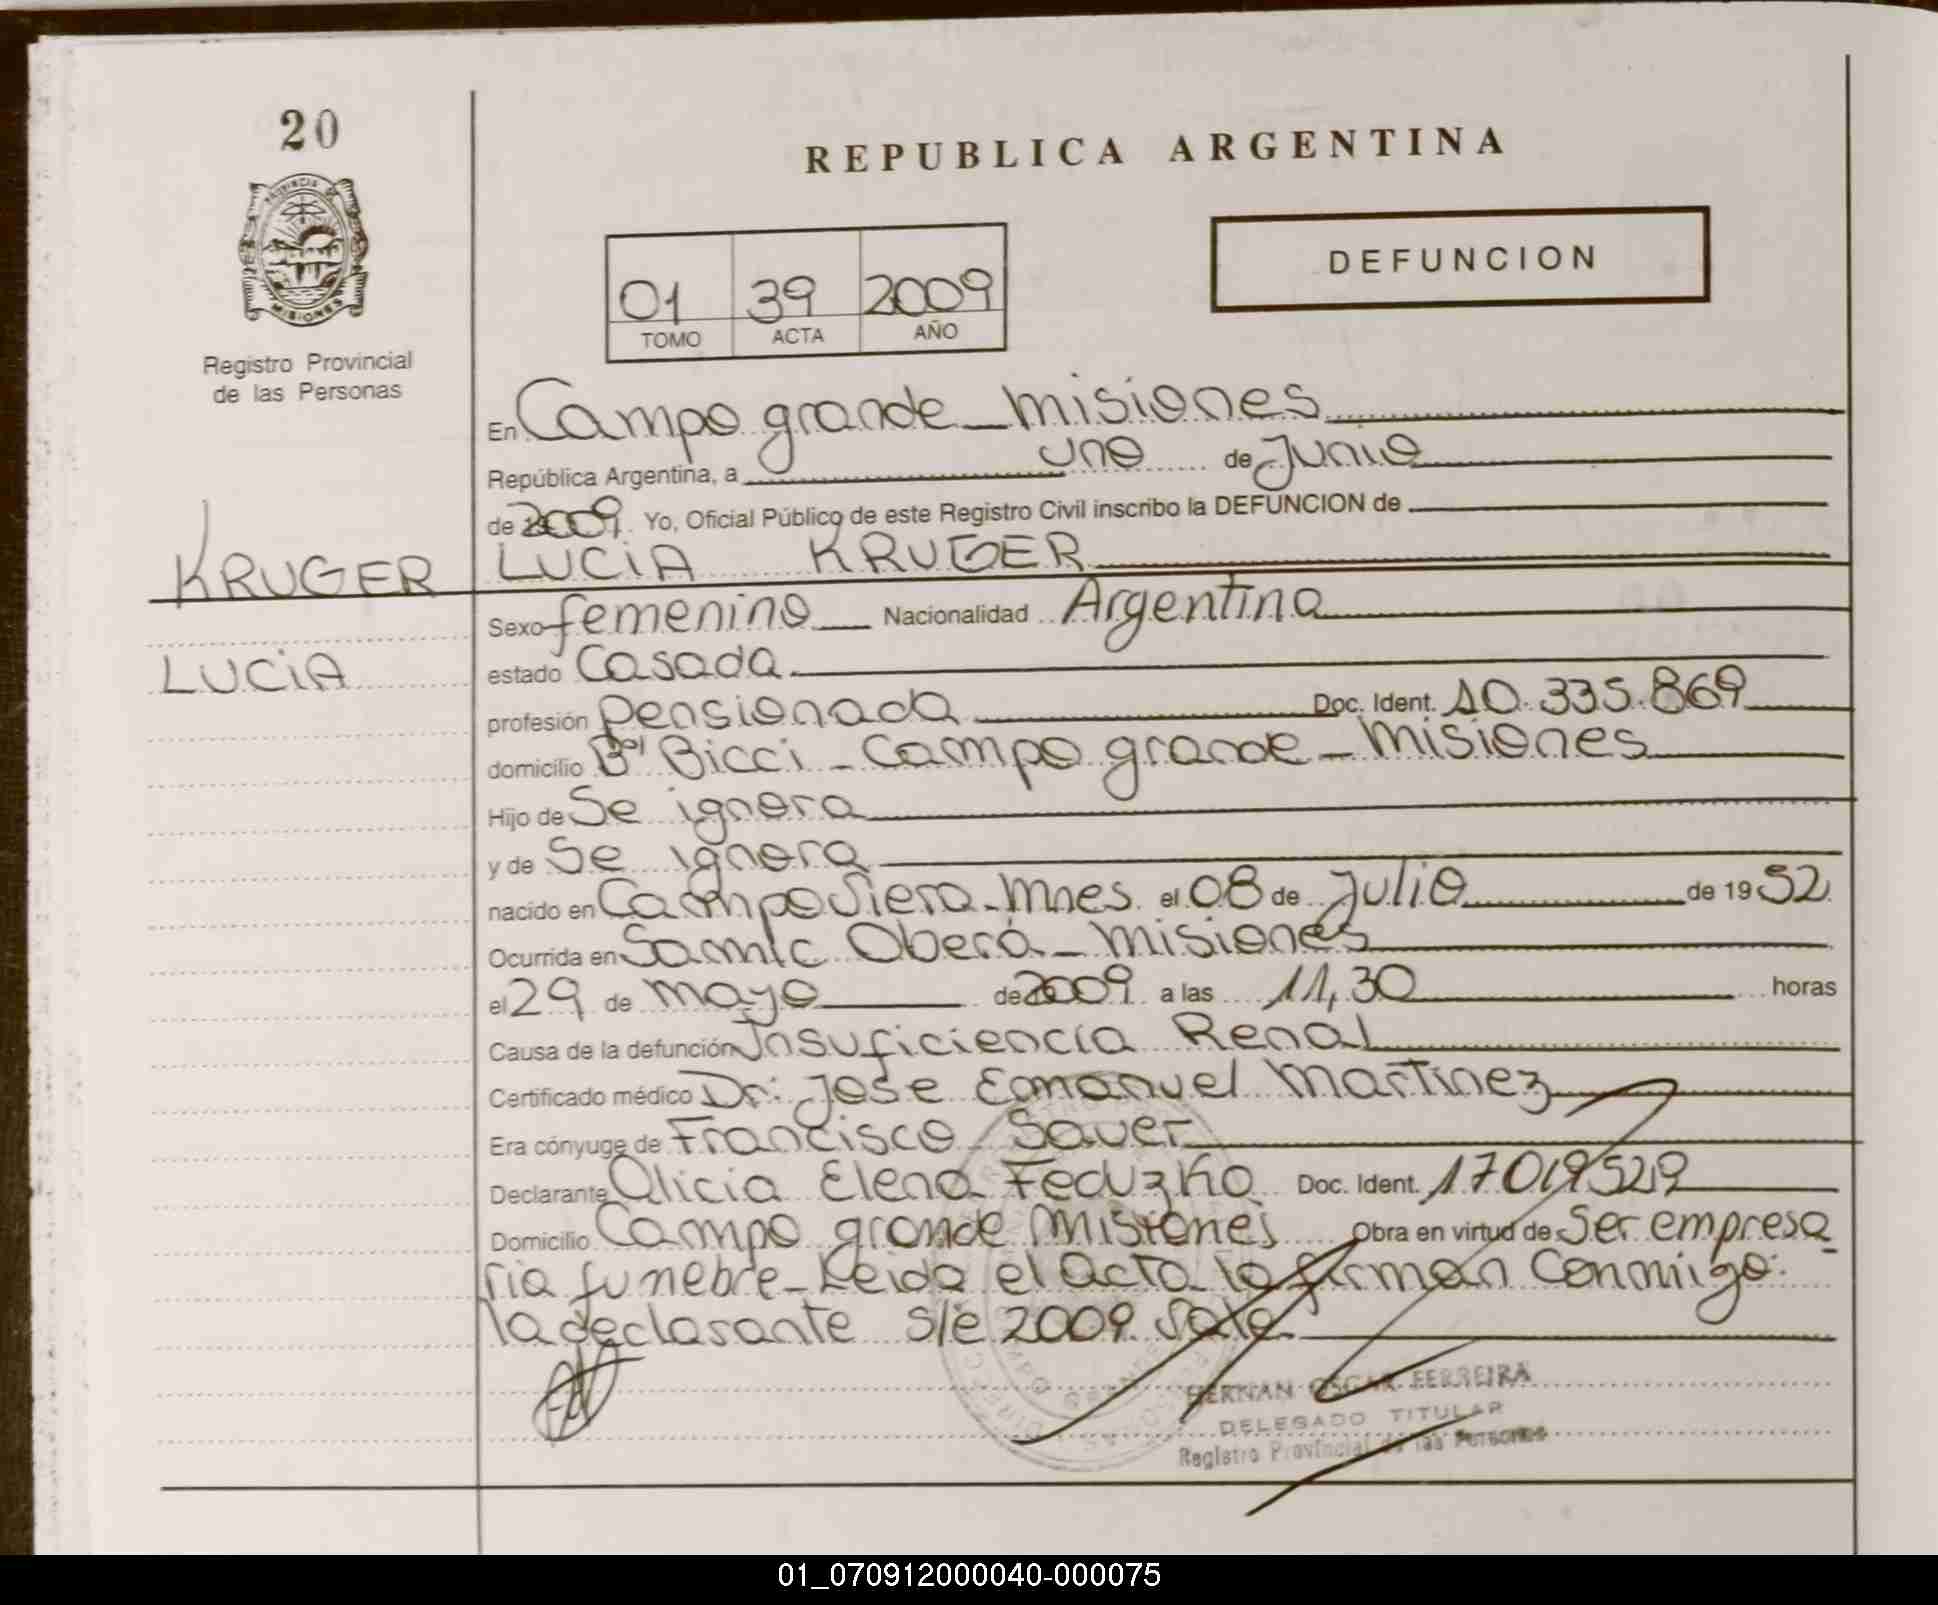 20
REPUBLICA ARGENTINA
PROVINCIA DE
MISIONES
DEFUNCION
01 39 2009
TOMO ACTA AÑO
Registro Provincial
de las Personas
En Campo grande_misiones
República Argentina, a uno de Junio
de 2009. Yo, Oficial Público de este Registro Civil inscribo la DEFUNCION de
KRUGER LUCIA KRUGER
Sexo femenino Nacionalidad Argentina
LUCIA
estado Casada
profesión pensionada Doc. Ident. 10.335.869
domicilio Bº Bicci - Campo grande - misiones
Hijo de Se ignora
y de Se ignora
nacido en Campo Viera - Mnes. el 08 de Julio de 1952
Ocurrida en Samic Oberá - misiones
el 29 de mayo de 2009 a las 11,30 horas
Causa de la defunción Insuficiencia Renal
Certificado médico Dr: Jose Emanuel Martinez
Era cónyuge de Francisco Sauer
Declarante Alicia Elena Feduzko Doc. Ident. 17019529
Domicilio Campo grande Misiones Obra en virtud de Ser empresa_
ria funebre - Leida el acta la firman Conmigo:
la declarante s/e 2009. Vale.
HERNAN OSCAR FERREIRA
DELEGADO TITULAR
Registro Provincial de las Personas
01_070912000040-000075